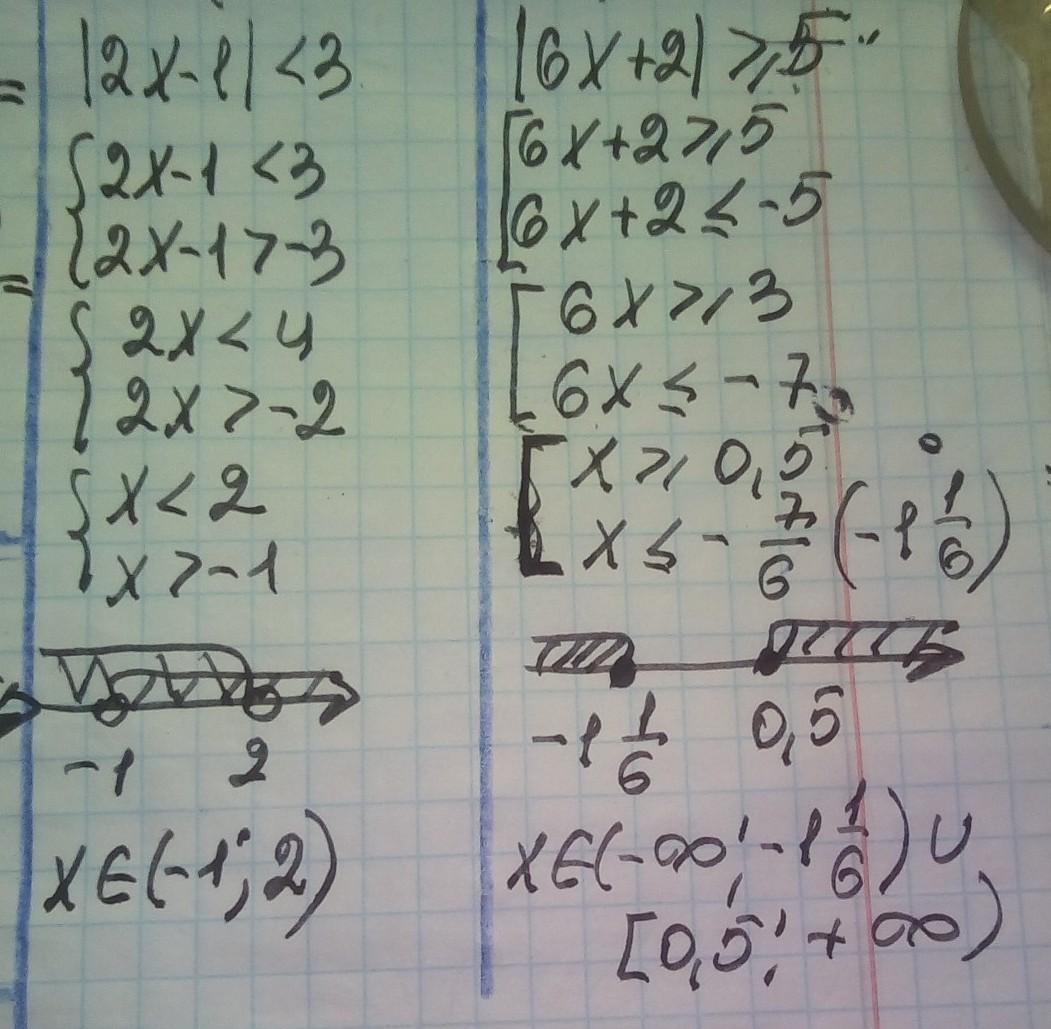 =
|2x-1| <3
{2x-1 <3
{2x-1>-3
=
{2x<4
{2x>-2
{x<2
{x>-1
-1 2
x∈(-1; 2)
|6x+2| ⩾5
[6x+2⩾5
[6x+2⩽-5
[6x⩾3
[6x⩽-7
[x⩾0,5
[x⩽-7/6 (-1 1/6)
-1 1/6 0,5
x∈(-∞; -1 1/6) ∪
[0,5; +∞)